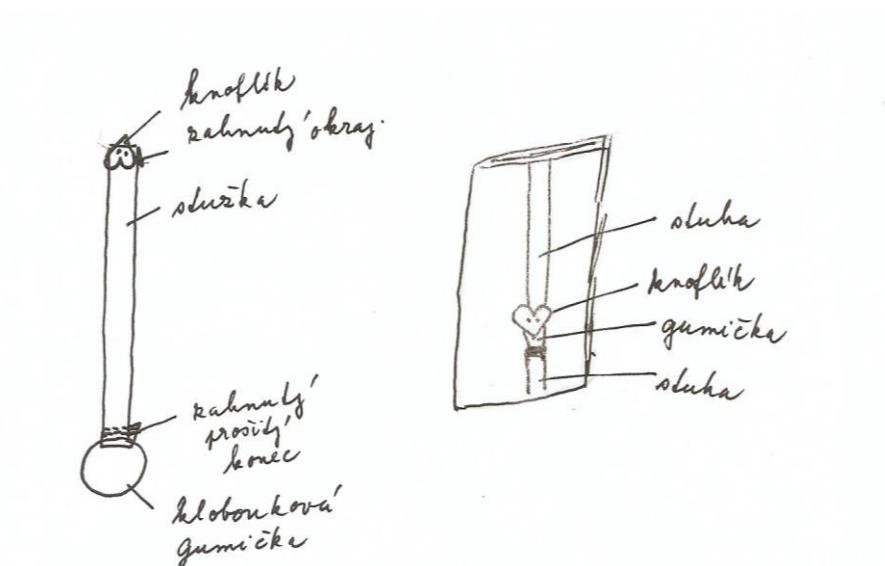 knoflík
zahnutý okraj.
stužka
zahnutý
prošitý
konec
klobouková
gumička
stuha
knoflík
gumička
stuha